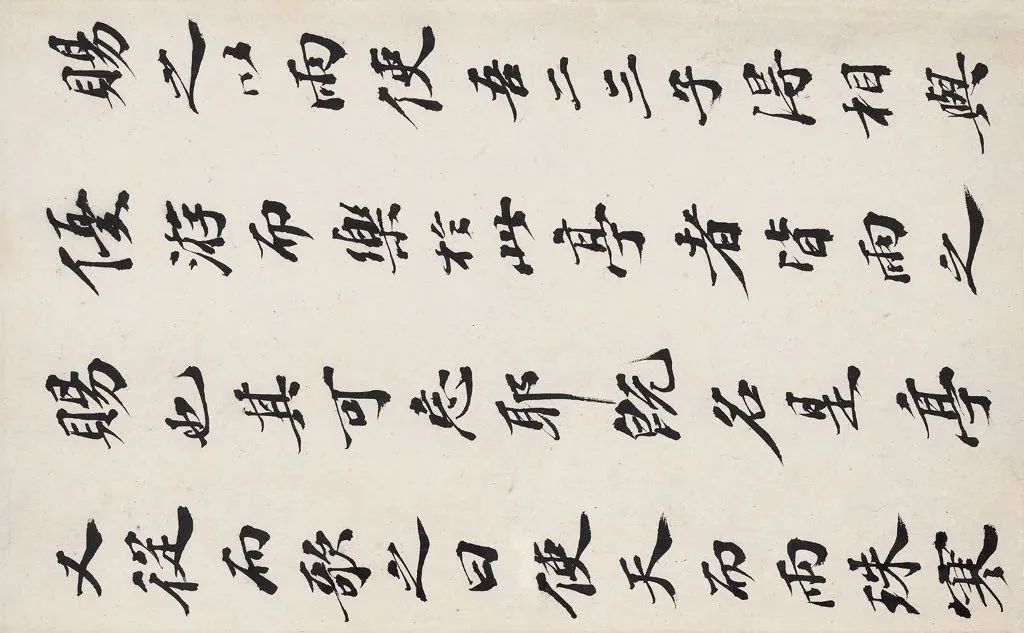 賜之以雨使吾二三子得相與
優游而樂於此亭者皆雨之
賜也其可忘耶既名是亭
又從而歌之曰使天而雨珠寒